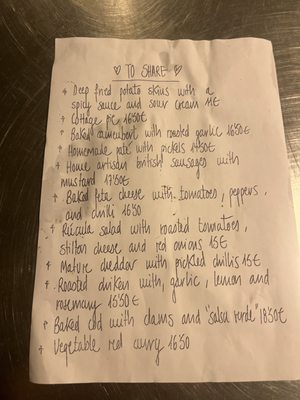 ♡ TO SHARE ♡
+ Deep fried potato skins with a
spicy sauce and sour cream 11€
+ Cottage pie 16'50€
+ Baked camembert with roasted garlic 16'50€
+ Homemade paté with pickels 14'50€
+ Home artisan british sausages with
mustard 17'50€
+ Baked feta cheese with tomatoes, peppers,
and chilli 16'50
+ Rúcula salad with roasted tomatoes,
stilton cheese and red onions 15€
+ Mature cheddar with pickled chillis 15€
+ Roasted chicken with, garlic, lemon and
rosemary 15'50€
+ Baked cod with clams and "salsa verde" 18'50€
+ Vegetable red curry 16'50